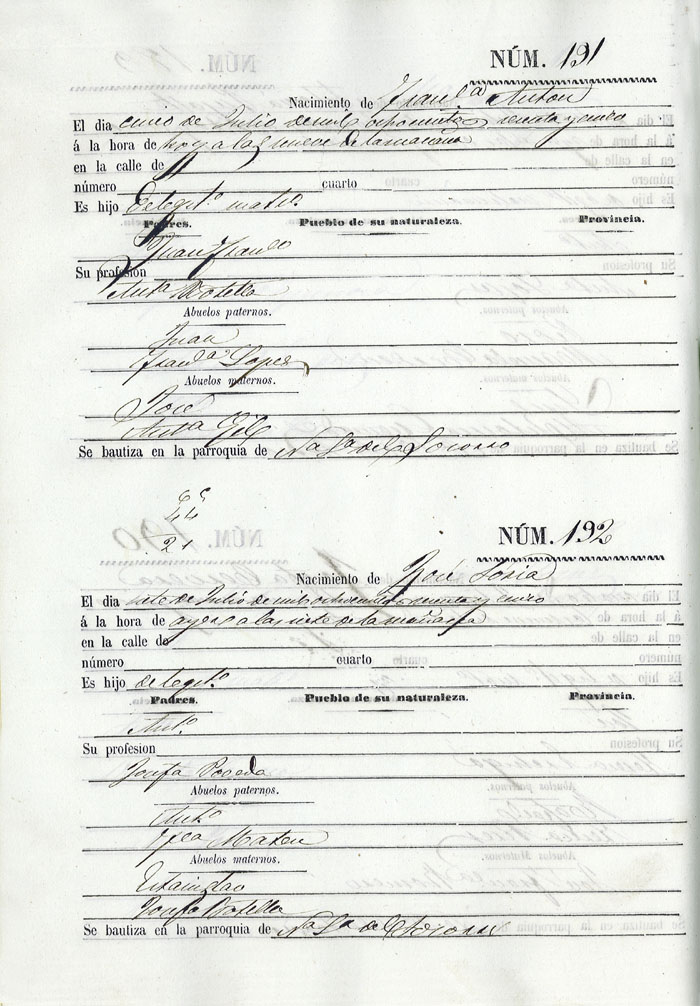 NÚM. 191
Nacimiento de Fran.ca Anton
El dia cinco de Julio de mil ochocientos sesenta y cinco
á la hora de hoy a las nueve de la mañana
en la calle de
número cuarto
Es hijo de legit.o matr.o
Padres. Pueblo de su naturaleza. Provincia.
Juan
Su profesion
Ant.a Botella
Abuelos paternos.
Juan
Fran.ca Lopez
Abuelos maternos.
José
Ant.a Gil
Se bautiza en la parroquia de N.a S.a del Socorro
44
21
NÚM. 192
Nacimiento de José Soria
El dia siete de Julio de mil ochocientos sesenta y cinco
á la hora de ayer a las siete de la mañana
en la calle de
número cuarto
Es hijo de legit.o
Padres. Pueblo de su naturaleza. Provincia.
Ant.o
Su profesion
Josefa Poveda
Abuelos paternos.
Ant.o
Mateu
Abuelos maternos.
Josefa Botella
Se bautiza en la parroquia de N.a S.a del Socorro